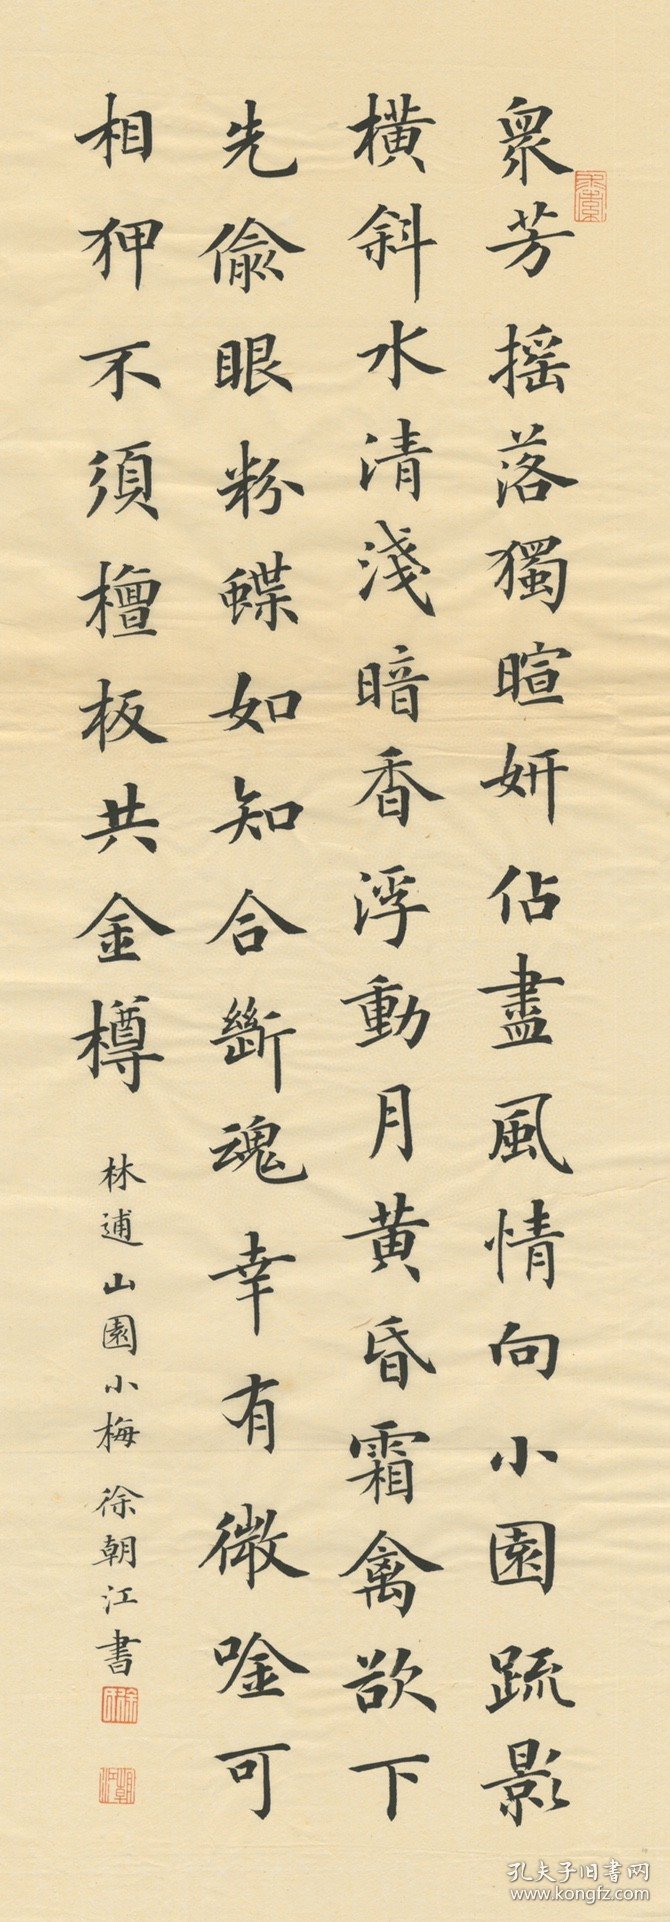 衆芳摇落獨暄妍佔盡風情向小園疏影
橫斜水清淺暗香浮動月黄昏霜禽欲下
先偷眼粉蝶如知合斷魂幸有微唫可
相狎不須檀板共金樽
林逋山園小梅 徐朝江書
孔夫子旧书网
www.kongfz.com